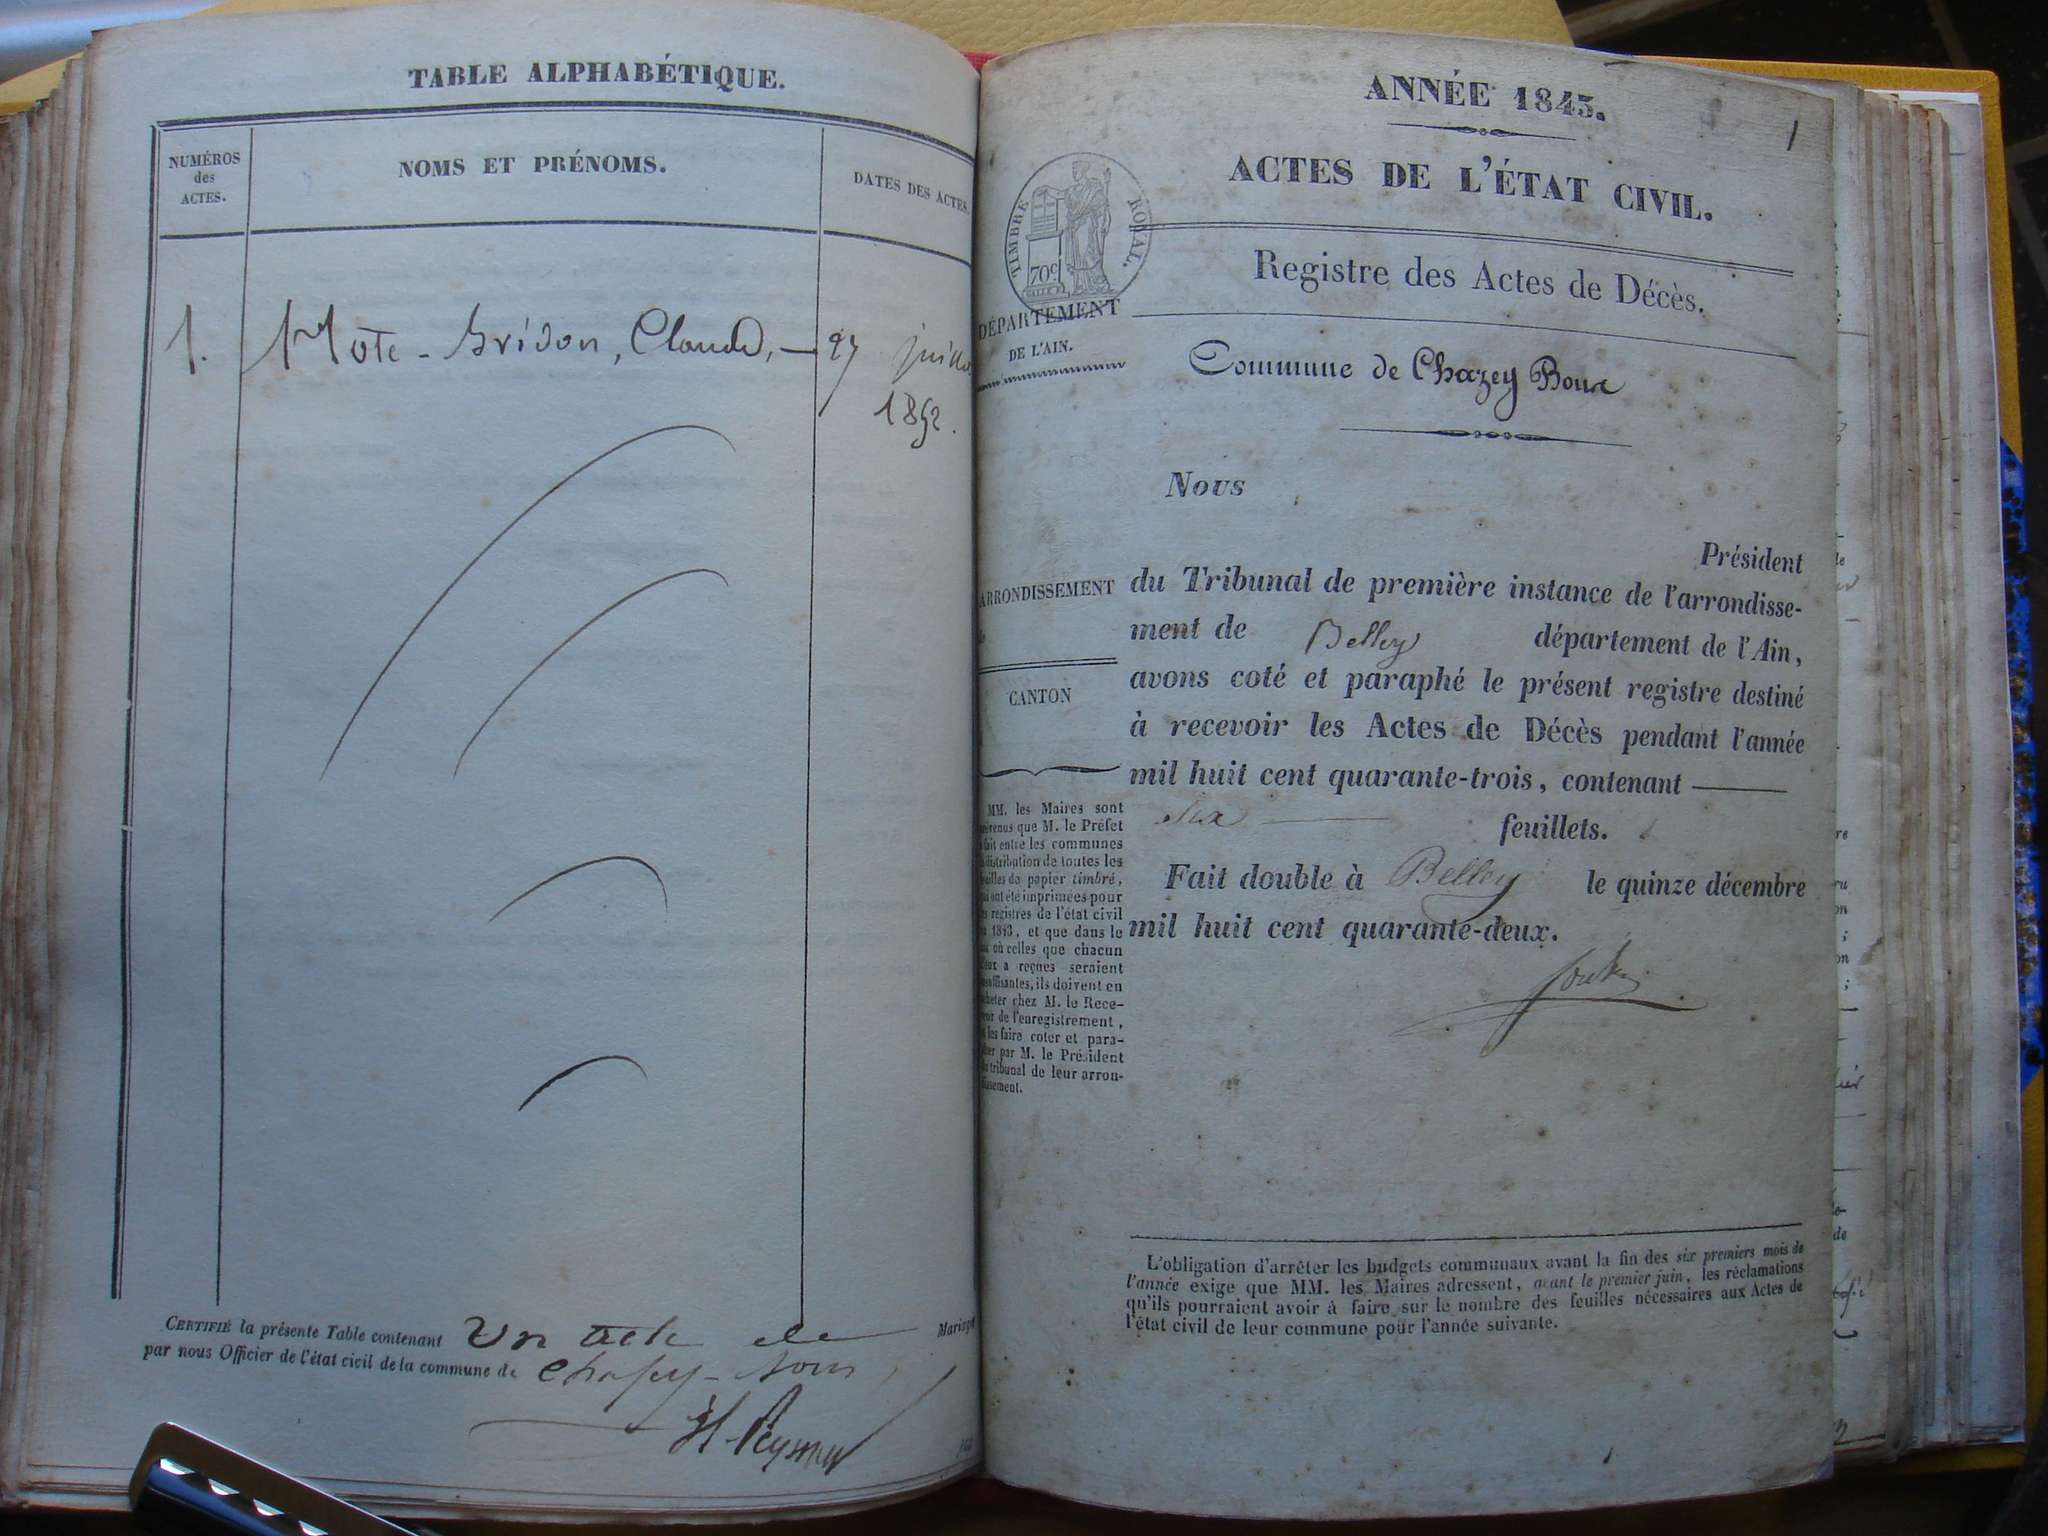 TABLE ALPHABÉTIQUE.
NUMÉROS
des
ACTES.
NOMS ET PRÉNOMS.
DATES DES ACTES.
1. Mote - Bridon, Claude, — 27
1852.
CERTIFIÉ la présente Table contenant un acte de Mariage
par nous Officier de l'état civil de la commune de Chazey-Bons
ANNÉE 1843.
1
ACTES DE L'ÉTAT CIVIL.
TIMBRE ROYAL.
70c
Registre des Actes de Décès.
DÉPARTEMENT
DE L'AIN.
Commune de Chazey Bons
Nous
Président
ARRONDISSEMENT
du Tribunal de première instance de l'arrondisse-
ment de Belley département de l'Ain,
CANTON
avons coté et paraphé le présent registre destiné
à recevoir les Actes de Décès pendant l'année
mil huit cent quarante-trois, contenant
six feuillets.
Fait double à Belley le quinze décembre
mil huit cent quarante-deux.
MM. les Maires sont
que M. le Préfet
fait entre les communes
distribution de toutes les
de papier timbré,
ont été imprimées pour
registres de l'état civil
1843, et que dans le
où celles que chacun
a reçues seraient
ils doivent en
chez M. le Rece-
de l'enregistrement,
les faire coter et para-
par M. le Président
tribunal de leur arron-
L'obligation d'arrêter les budgets communaux avant la fin des six premiers mois de
l'année exige que MM. les Maires adressent, avant le premier juin, les réclamations
qu'ils pourraient avoir à faire sur le nombre des feuilles nécessaires aux Actes de
l'état civil de leur commune pour l'année suivante.